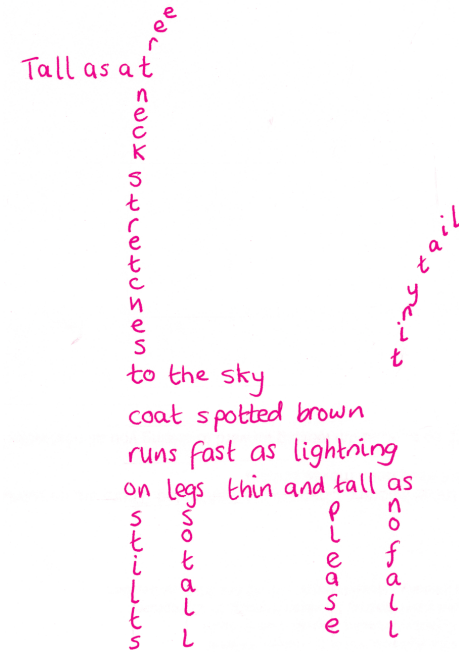 Tall as a tree
neck stretches
to the sky
coat spotted brown
runs fast as lightning
on legs thin and tall as
stilts
so tall
please
no fall
tiny tail